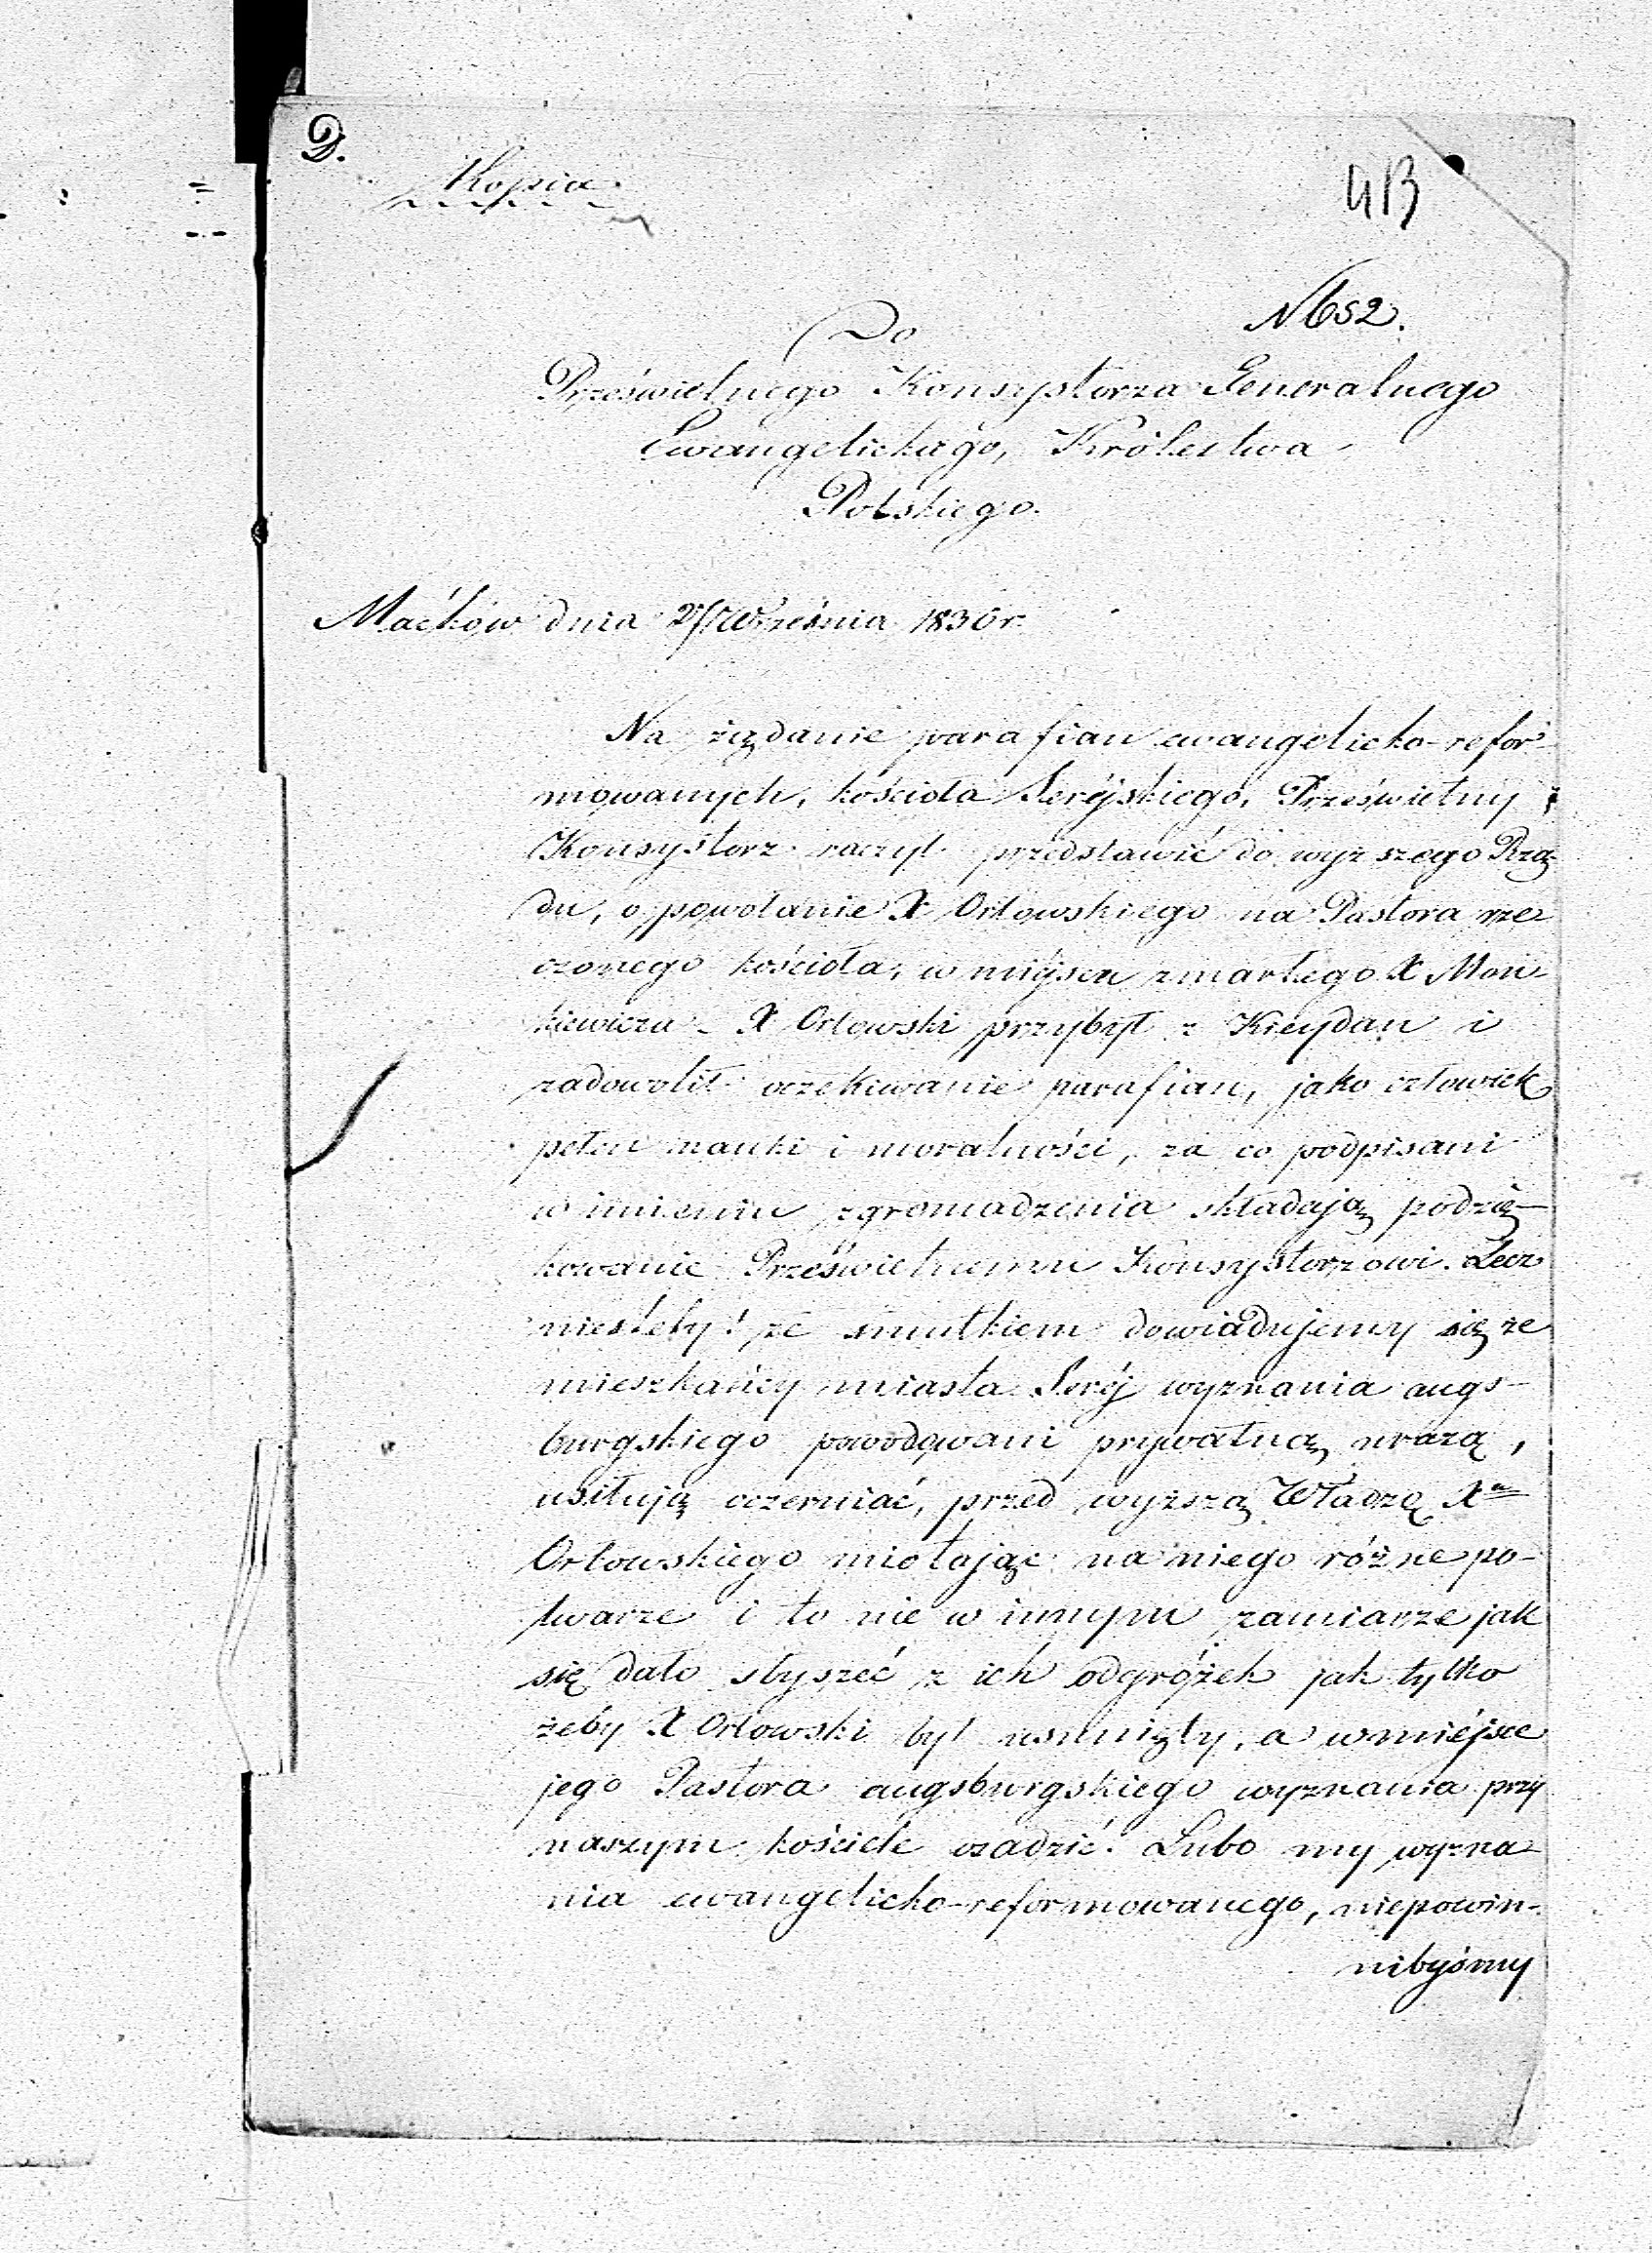 D.
Kopia
413
N 652.
Do
Prześwietnego Konsystorza Generalnego
Ewangelickiego, Królestwa
Polskiego.
Maćków dnia Września 1836 r.
Na żądanie parafian ewangelicko-refor-
mowanych, kościoła Seréjskiego, Prześwietny
Konsystorz raczył przedstawić do wyższego Rzą-
du, o powołanie X Orłowskiego na Pastora rze-
czonego kościoła, w miéjscu zmarłego X Mon-
kiewicza - X Orłowski przybył z Kieydan i
zadowolił oczekiwanie parafian, jako człowiek
pełen nauki i moralności, za co podpisani
w imieniu zgromadzenia składają podzię-
kowanie Prześwietnemu Konsystorzowi. Lecz
niestety! ze smutkiem dowiadujemy się że
mieszkańcy miasta Seréj wyznania augs-
burgskiego powodowani prywatną urazą,
usiłują oczerniać, przed wyższą Władzą Xa
Orłowskiego miotając na niego różne po-
twarze i to nie w innym zamiarze jak
się dało słyszeć z ich odgróżek jak tylko
żeby X Orłowski był usunięty, a w miéjsce
jego Pastora augsburgskiego wyznania przy
naszym kościele osadzić. Lubo my wyzna-
nia ewangelicko-reformowanego, niepowin-
nibyśmy